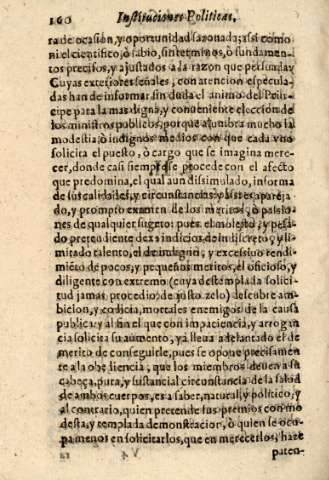 160 Instituciones Politicas,
ra de ocasion, y oportunidad sazonada; assi como
ni el cientifico, ò sabio, sin terminos, ò fundamen-
tos precisos, y ajustados a la razon que persuada; y
Cuyas exteriores señales, con atencion especula-
das han de informar sin duda el animo del Prin-
cipe para la mas digna, y conueniente eleccion de
los ministros publicos, porque alumbra mucho la
modestia, ò indignos medios con que cada vno
solicita el puesto, ò cargo que se imagina mere-
cer, donde casi siempre se procede con el afecto
que predomina, el qual aun dissimulado, informa
de sus calidades, y circunstancias
do, y prompto examen de los meritos, ò passio
nes de qualquier sugeto: pues el molesto, y pesa-
do pretendiente dexa indicios de indiscreto, y li-
mitado talento, el de indigno, y excessiuo rendi-
miẽto de pocos, y pequeños meritos, el oficioso, y
diligente con extremo (cuya destemplada solici-
tud jamas procediò de justo zelo) descubre am-
bicion, y codicia, mortales enemigos de la causa
publica; y al fin el que con impaciencia, y arrogan
cia solicita su aumento, ya lleua adelantado el de
merito de conseguirle, pues se opone precisamen
te a la obediencia, que los miembros deuen a su
cabeça, pura, y sustancial circunstancia de la salud
de ambos cuerpos, es a saber, natural, y politico, y
al contrario, quien pretende sus premios con mo
desta, y templada demonstracion, ò quien se ocu-
pa menos en solicitarlos, que en merecerlos, haze
paten-